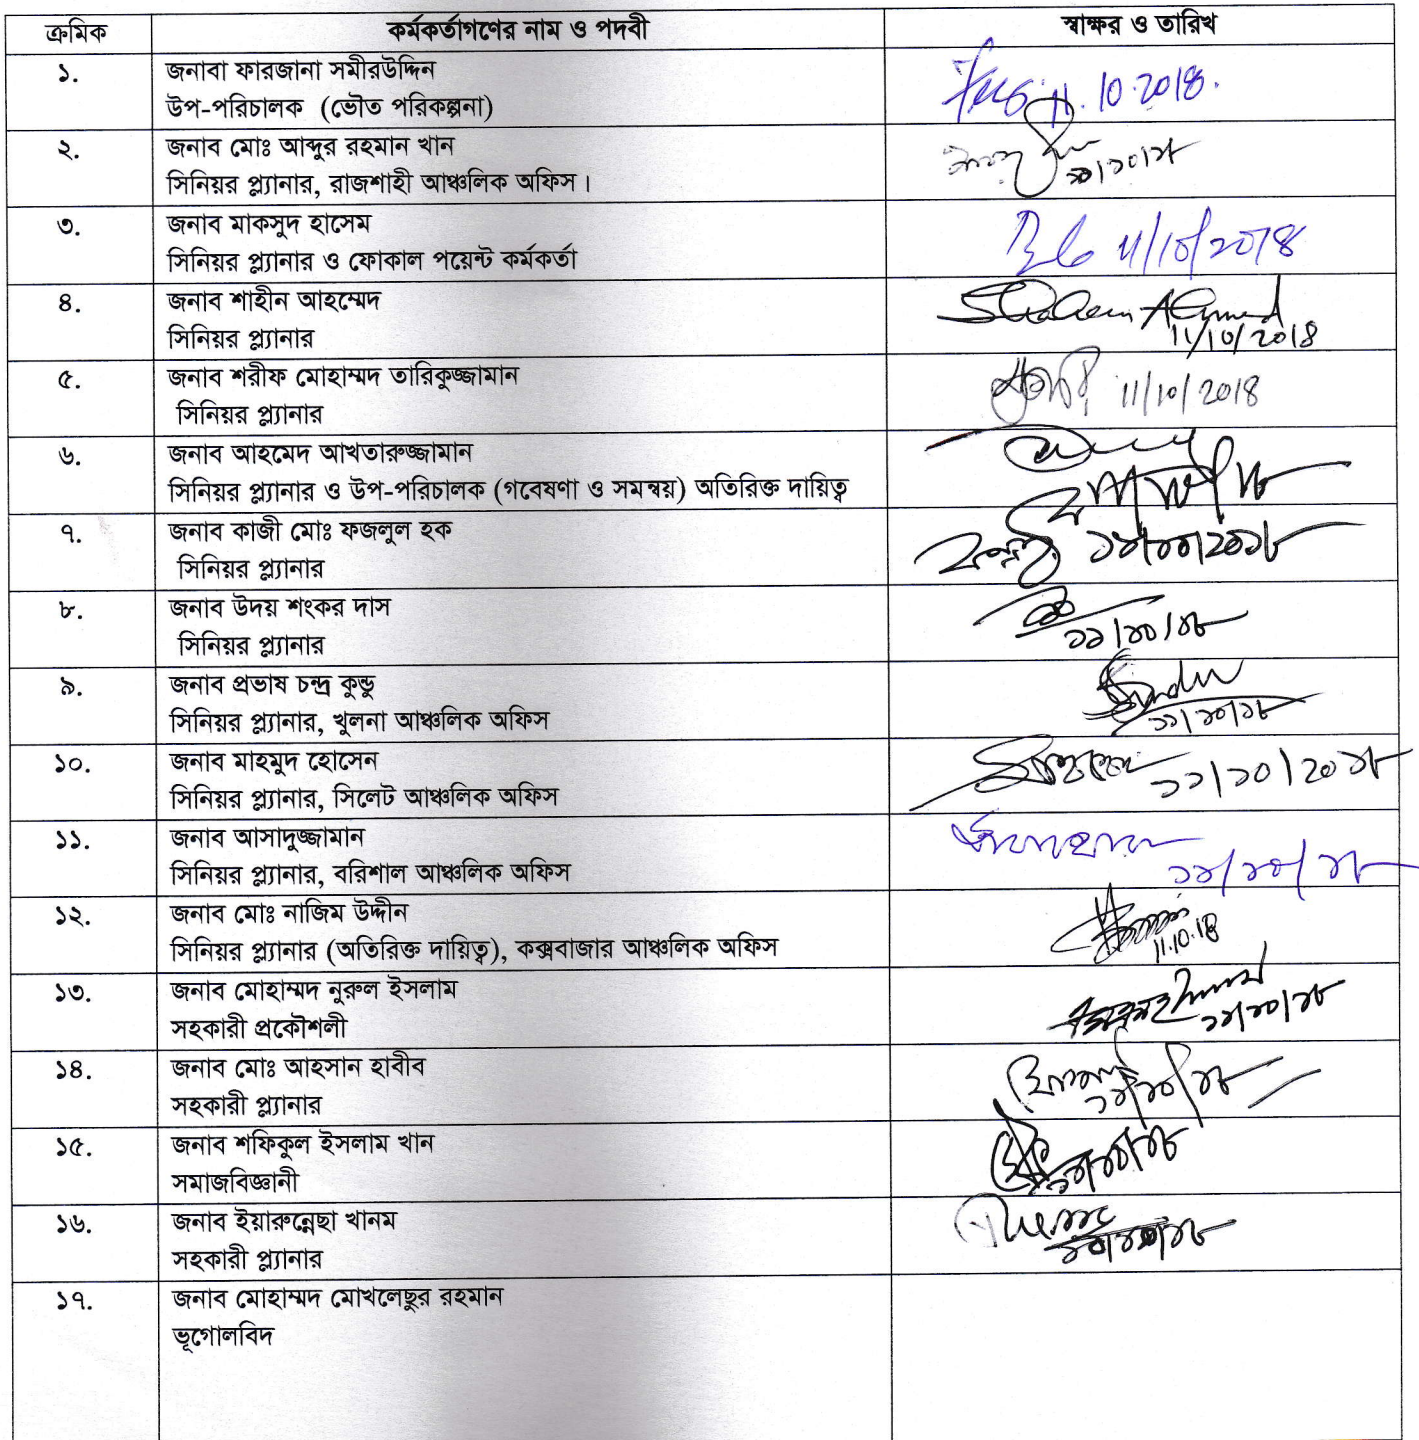 ক্রমিক কর্মকর্তাগণের নাম ও পদবী স্বাক্ষর ও তারিখ
১. জনাবা ফারজানা সমীরউদ্দিন
উপ-পরিচালক (ভৌত পরিকল্পনা)
11.10.2018.
২. জনাব মোঃ আব্দুর রহমান খান
সিনিয়র প্ল্যানার, রাজশাহী আঞ্চলিক অফিস।
৩. জনাব মাকসুদ হাসেম
সিনিয়র প্ল্যানার ও ফোকাল পয়েন্ট কর্মকর্তা
11/10/2018
৪. জনাব শাহীন আহম্মেদ
সিনিয়র প্ল্যানার
Shaheen Ahmed
11/10/2018
৫. জনাব শরীফ মোহাম্মদ তারিকুজ্জামান
সিনিয়র প্ল্যানার
11/10/2018
৬. জনাব আহমেদ আখতারুজ্জামান
সিনিয়র প্ল্যানার ও উপ-পরিচালক (গবেষণা ও সমন্বয়) অতিরিক্ত দায়িত্ব
৭. জনাব কাজী মোঃ ফজলুল হক
সিনিয়র প্ল্যানার
১১/১০/২০১৮
৮. জনাব উদয় শংকর দাস
সিনিয়র প্ল্যানার
১১/১০/১৮
৯. জনাব প্রভাষ চন্দ্র কুন্ডু
সিনিয়র প্ল্যানার, খুলনা আঞ্চলিক অফিস
১১/১০/১৮
১০. জনাব মাহমুদ হোসেন
সিনিয়র প্ল্যানার, সিলেট আঞ্চলিক অফিস
১১/১০/২০১৮
১১. জনাব আসাদুজ্জামান
সিনিয়র প্ল্যানার, বরিশাল আঞ্চলিক অফিস
১১/১০/১৮
১২. জনাব মোঃ নাজিম উদ্দীন
সিনিয়র প্ল্যানার (অতিরিক্ত দায়িত্ব), কক্সবাজার আঞ্চলিক অফিস
11.10.18
১৩. জনাব মোহাম্মদ নুরুল ইসলাম
সহকারী প্রকৌশলী
১১/১০/১৮
১৪. জনাব মোঃ আহসান হাবীব
সহকারী প্ল্যানার
১১/১০/১৮
১৫. জনাব শফিকুল ইসলাম খান
সমাজবিজ্ঞানী
১১/১০/১৮
১৬. জনাব ইয়ারুন্নেছা খানম
সহকারী প্ল্যানার
১৭. জনাব মোহাম্মদ মোখলেছুর রহমান
ভূগোলবিদ